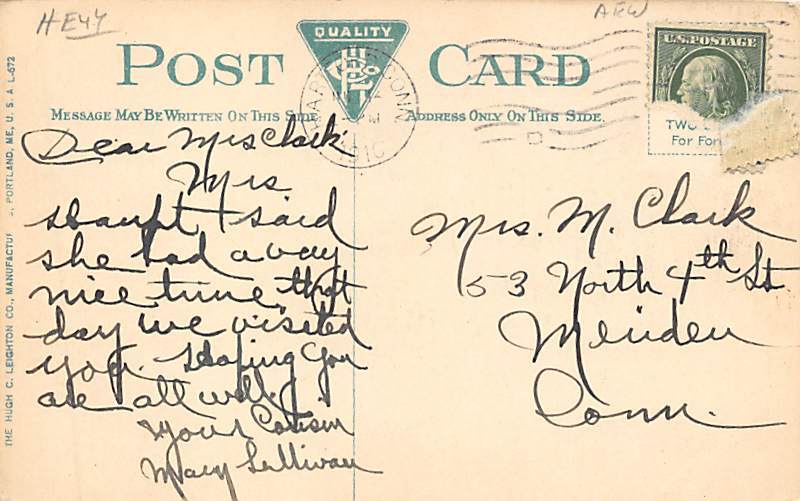 HE44
AEW
QUALITY
POST CARD
MESSAGE MAY BE WRITTEN ON THIS SIDE
ADDRESS ONLY ON THIS SIDE.
U.S. POSTAGE
TWO
For For
CONN
Dear Mrs Clark
Mrs
said
she had a vay
nice time that
day we visited
you. Hoping you
are all well.
Your Cousin
Mary Sullivan
Mrs. M. Clark
53 North 4th St.
Meriden
Conn.
THE HUGH C. LEIGHTON CO., MANUFACTU , PORTLAND, ME, U. S. A. L-572